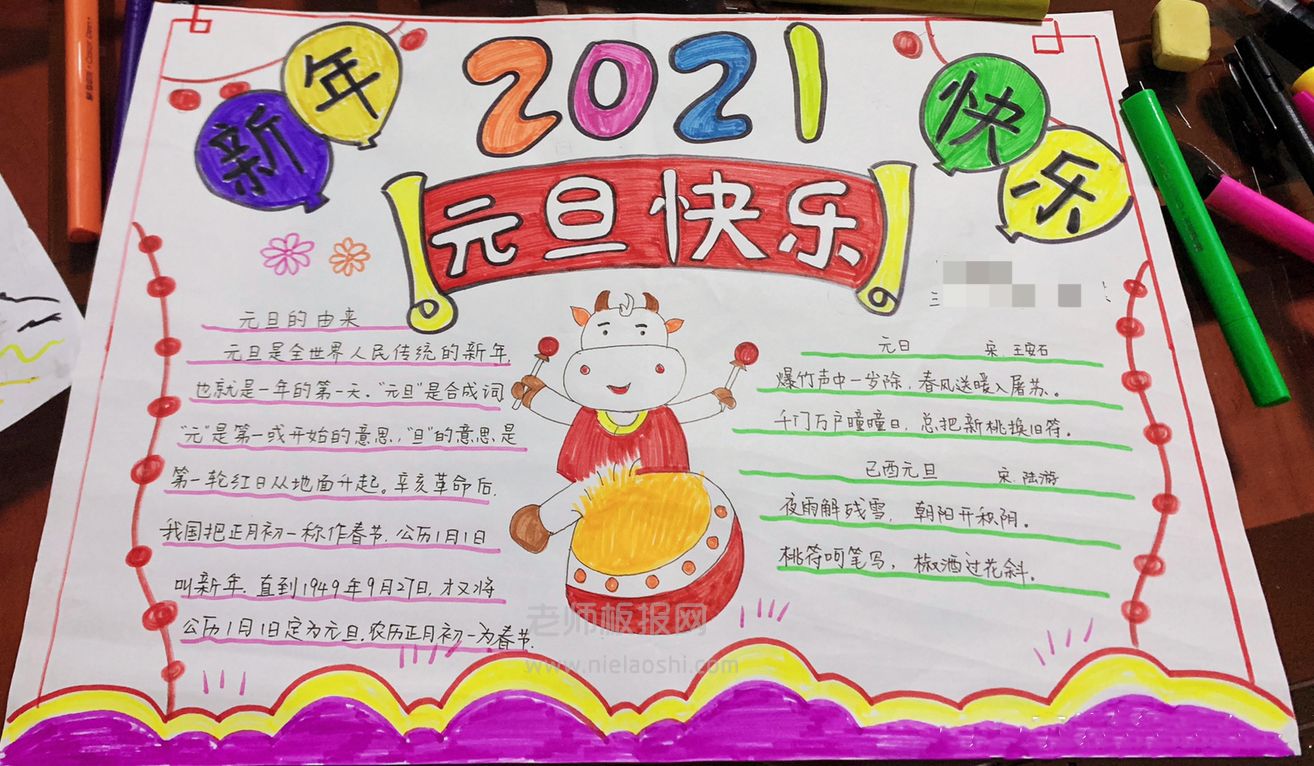 新年
2021
快乐
元旦快乐
三
元旦的由来
元旦是全世界人民传统的新年,
也就是一年的第一天."元旦"是合成词
"元"是第一或开始的意思,"旦"的意思是
第一轮红日从地面升起。辛亥革命后,
我国把正月初一称作春节,公历1月1日
叫新年.直到1949年9月27日,才又将
公历1月1日定为元旦,农历正月初一为春节.
元日 宋.王安石
爆竹声中一岁除,春风送暖入屠苏。
千门万户曈曈日,总把新桃换旧符。
己酉元旦 宋.陆游
夜雨解残雪,朝阳开积阴。
桃符呵笔写,椒酒过花斜.
老师板报网
www.nielaoshi.com